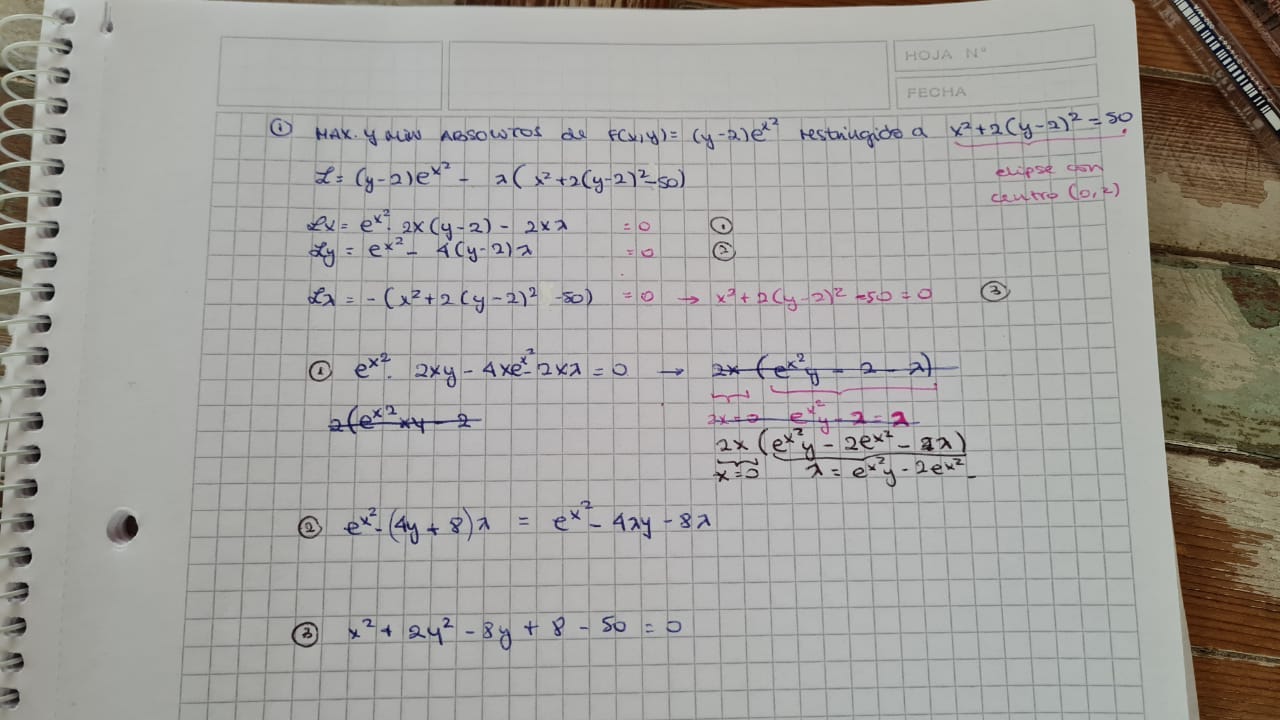 HOJA N°
FECHA
① MAX. y MIN ABSOLUTOS de F(x,y) = (y-2)e^x² restringido a x²+2(y-2)² = 50
elipse con
centro (0,2)
ℒ = (y-2)e^x² - λ(x²+2(y-2)²-50)
ℒx = e^x² · 2x(y-2) - 2xλ = 0 ①
ℒy = e^x² - 4(y-2)λ = 0 ②
ℒλ = -(x²+2(y-2)² -50) = 0 → x²+2(y-2)² -50 = 0 ③
① e^x² · 2xy - 4xe^x² - 2xλ = 0 → 2x (e^x² y - 2 - λ)
2(e^x² xy - 2
2x = 0 e^x² y - 2 = λ
2x (e^x² y - 2e^x² - λ)
x = 0 λ = e^x² y - 2e^x²
② e^x² - (4y + 8)λ = e^x² - 4λy - 8λ
③ x² + 2y² - 8y + 8 - 50 = 0